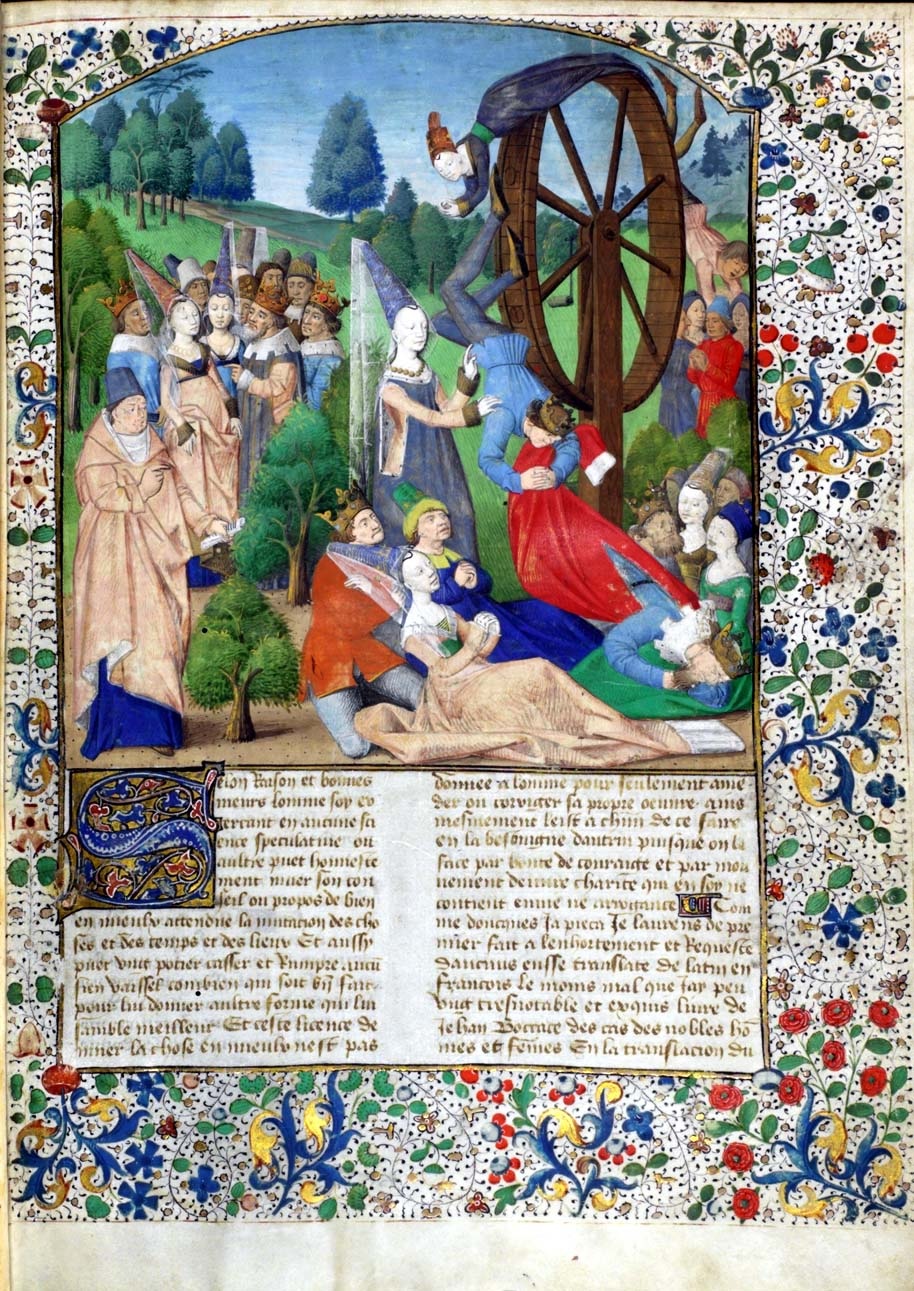 Selon Raison et bonnes
meurs lomme soy ex
ercant en aucune sci
ence speculative ou
aultre puet honneste
ment muer son con
seil ou propos de bien
en mieulx attendue la mutation des cho
ses et des temps et des lieux Et aussy
puet ung potier casser et Rumpre aucu
sien vaissel combien qui soit bn̄ fait
pour lui donner aultre forme qui lui
samble meilleur Et ceste licence de
muer la chose en mieulx nest pas
donnee a lomme pour seulement amē
der ou corriger sa propre oeuvre ains
mesmement leist a chūn de ce faire
en la besoingne daultrui puisque on la
face par bonte de couraige et par mou
vement de vraie charite qui en soy ne
contient envie ne arrogance Com
me doncques Ja pieca Je laurens de pre
mier fait a lenhortement et Requeste
daucuns eusse translate de latin en
francois le moins mal que Jay peu
ung tresnotable et exquis livre de
Jehan Boccace des cas des nobles hō
mes et fēmes En la translacion du